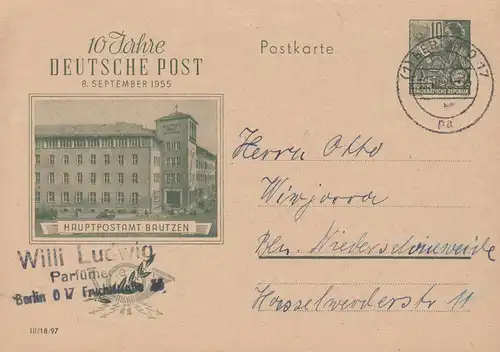 10 Jahre
DEUTSCHE POST
8. SEPTEMBER 1955
HAUPTPOSTAMT BAUTZEN
Willi Ludwig
Berlin O 17
III/18/97
Postkarte
10
DEMOKRATISCHE REPUBLIK
(1) BERLIN O 17
pa
Herrn Otto
Bln. Niederschöneweide
Hasselwerderstr 11